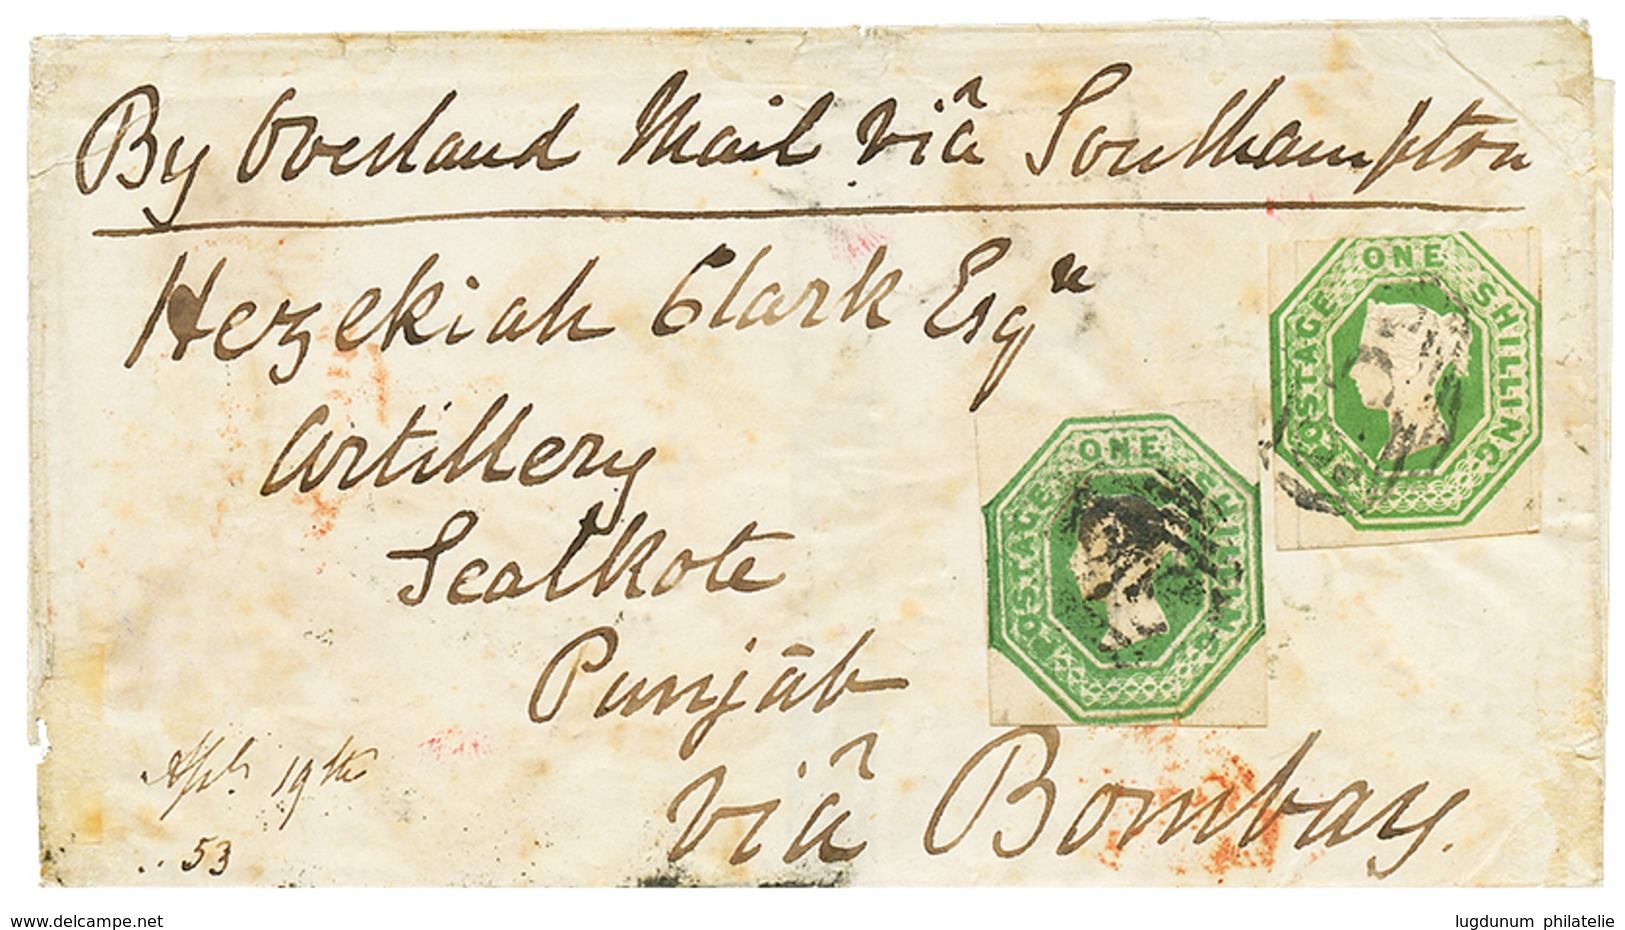 By Overland Mail viâ Southampton
Hezekiah Clark Esqr
ONE SHILLING
POSTAGE
Artillery
ONE SHILLING
POSTAGE
Sealkote
Punjāb
Apl. 19th
viâ Bombay.
.. 53
www.delcampe.net
lugdunum philatelie